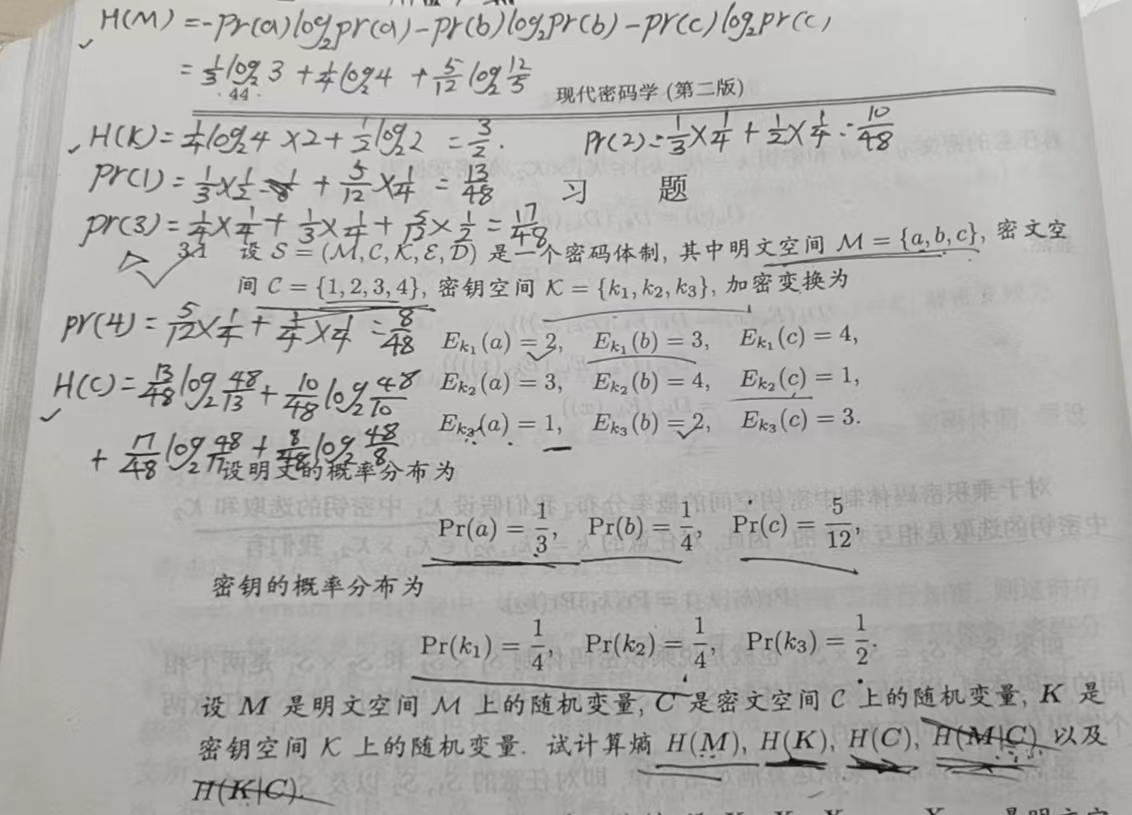 H(M) = -pr(a)log₂pr(a) - pr(b)log₂pr(b) - pr(c)log₂pr(c)
= 1/3 log₂ 3 + 1/4 log₂ 4 + 5/12 log₂ 12/5
· 44 ·
现代密码学 (第二版)
H(K) = 1/4 log₂ 4 × 2 + 1/2 log₂ 2 = 3/2.
Pr(2) = 1/3 × 1/4 + 1/2 × 1/4 = 10/48
pr(1) = 1/3 × 1/2 + 5/12 × 1/4 = 13/48
习 题
pr(3) = 1/4 × 1/4 + 1/3 × 1/4 + 5/12 × 1/2 = 17/48
3.1 设 S = (M, C, K, E, D) 是一个密码体制, 其中明文空间 M = {a, b, c}, 密文空
间 C = {1, 2, 3, 4}, 密钥空间 K = {k₁, k₂, k₃}, 加密变换为
pr(4) = 5/12 × 1/4 + 1/4 × 1/4 = 8/48
E_{k₁}(a) = 2, E_{k₁}(b) = 3, E_{k₁}(c) = 4,
H(C) = 13/48 log₂ 48/13 + 10/48 log₂ 48/10
E_{k₂}(a) = 3, E_{k₂}(b) = 4, E_{k₂}(c) = 1,
E_{k₃}(a) = 1, E_{k₃}(b) = 2, E_{k₃}(c) = 3.
+ 17/48 log₂ 48/17 + 8/48 log₂ 48/8
设明文的概率分布为
Pr(a) = 1/3, Pr(b) = 1/4, Pr(c) = 5/12,
密钥的概率分布为
Pr(k₁) = 1/4, Pr(k₂) = 1/4, Pr(k₃) = 1/2.
设 M 是明文空间 M 上的随机变量, C 是密文空间 C 上的随机变量, K 是
密钥空间 K 上的随机变量. 试计算熵 H(M), H(K), H(C), H(M|C), 以及
H(K|C).